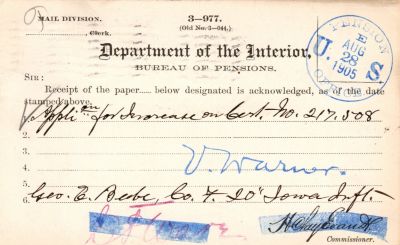 MAIL DIVISION.
3—977.
(Old No. 3—044.)
, Clerk.
PENSION
E
AUG
U. 28 S
1905
OFFICE
Department of the Interior,
BUREAU OF PENSIONS.
SIR:
Receipt of the paper...... below designated is acknowledged, as of the date
stamped above.
1. Applion for Increase on Cert. No. 217.508
2.
3.
4. V. Warner.
5.
6. Geo. E. Bebe, Co. F. 20" Iowa Inft.
Commissioner.